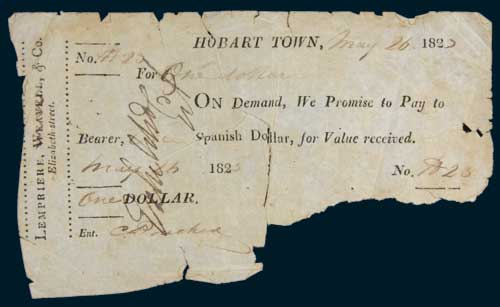 LEMPRIERE, WEAVELL, & Co.
Elizabeth street.
HOBART TOWN, May 26 182
No. A 23
For One dollar
ON Demand, We Promise to Pay to
Bearer, Spanish Dollar, for Value received.
May 26 182 No. A 23
One DOLLAR.
Ent.